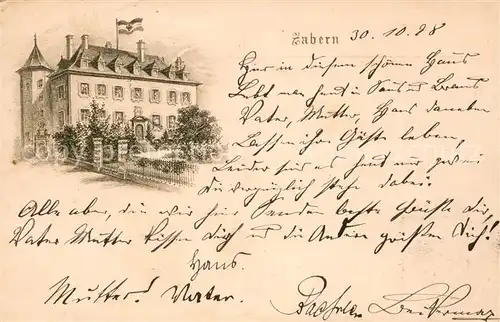 Zabern 30. 10. 98
Hier in diesem schönen Haus
Lebt man heut in Saus u Braus
Vater, Mutter, Hans daneben
Lassen ihre Gäste leben,
Leider sind es heut nur zwei
Die vergnüglich sind dabei.
Alle aber, die wir hier senden beste Grüße Dir,
Vater Mutter küssen Dich u die Andern grüßen Dich!
Hans.
Mutter! Vater.